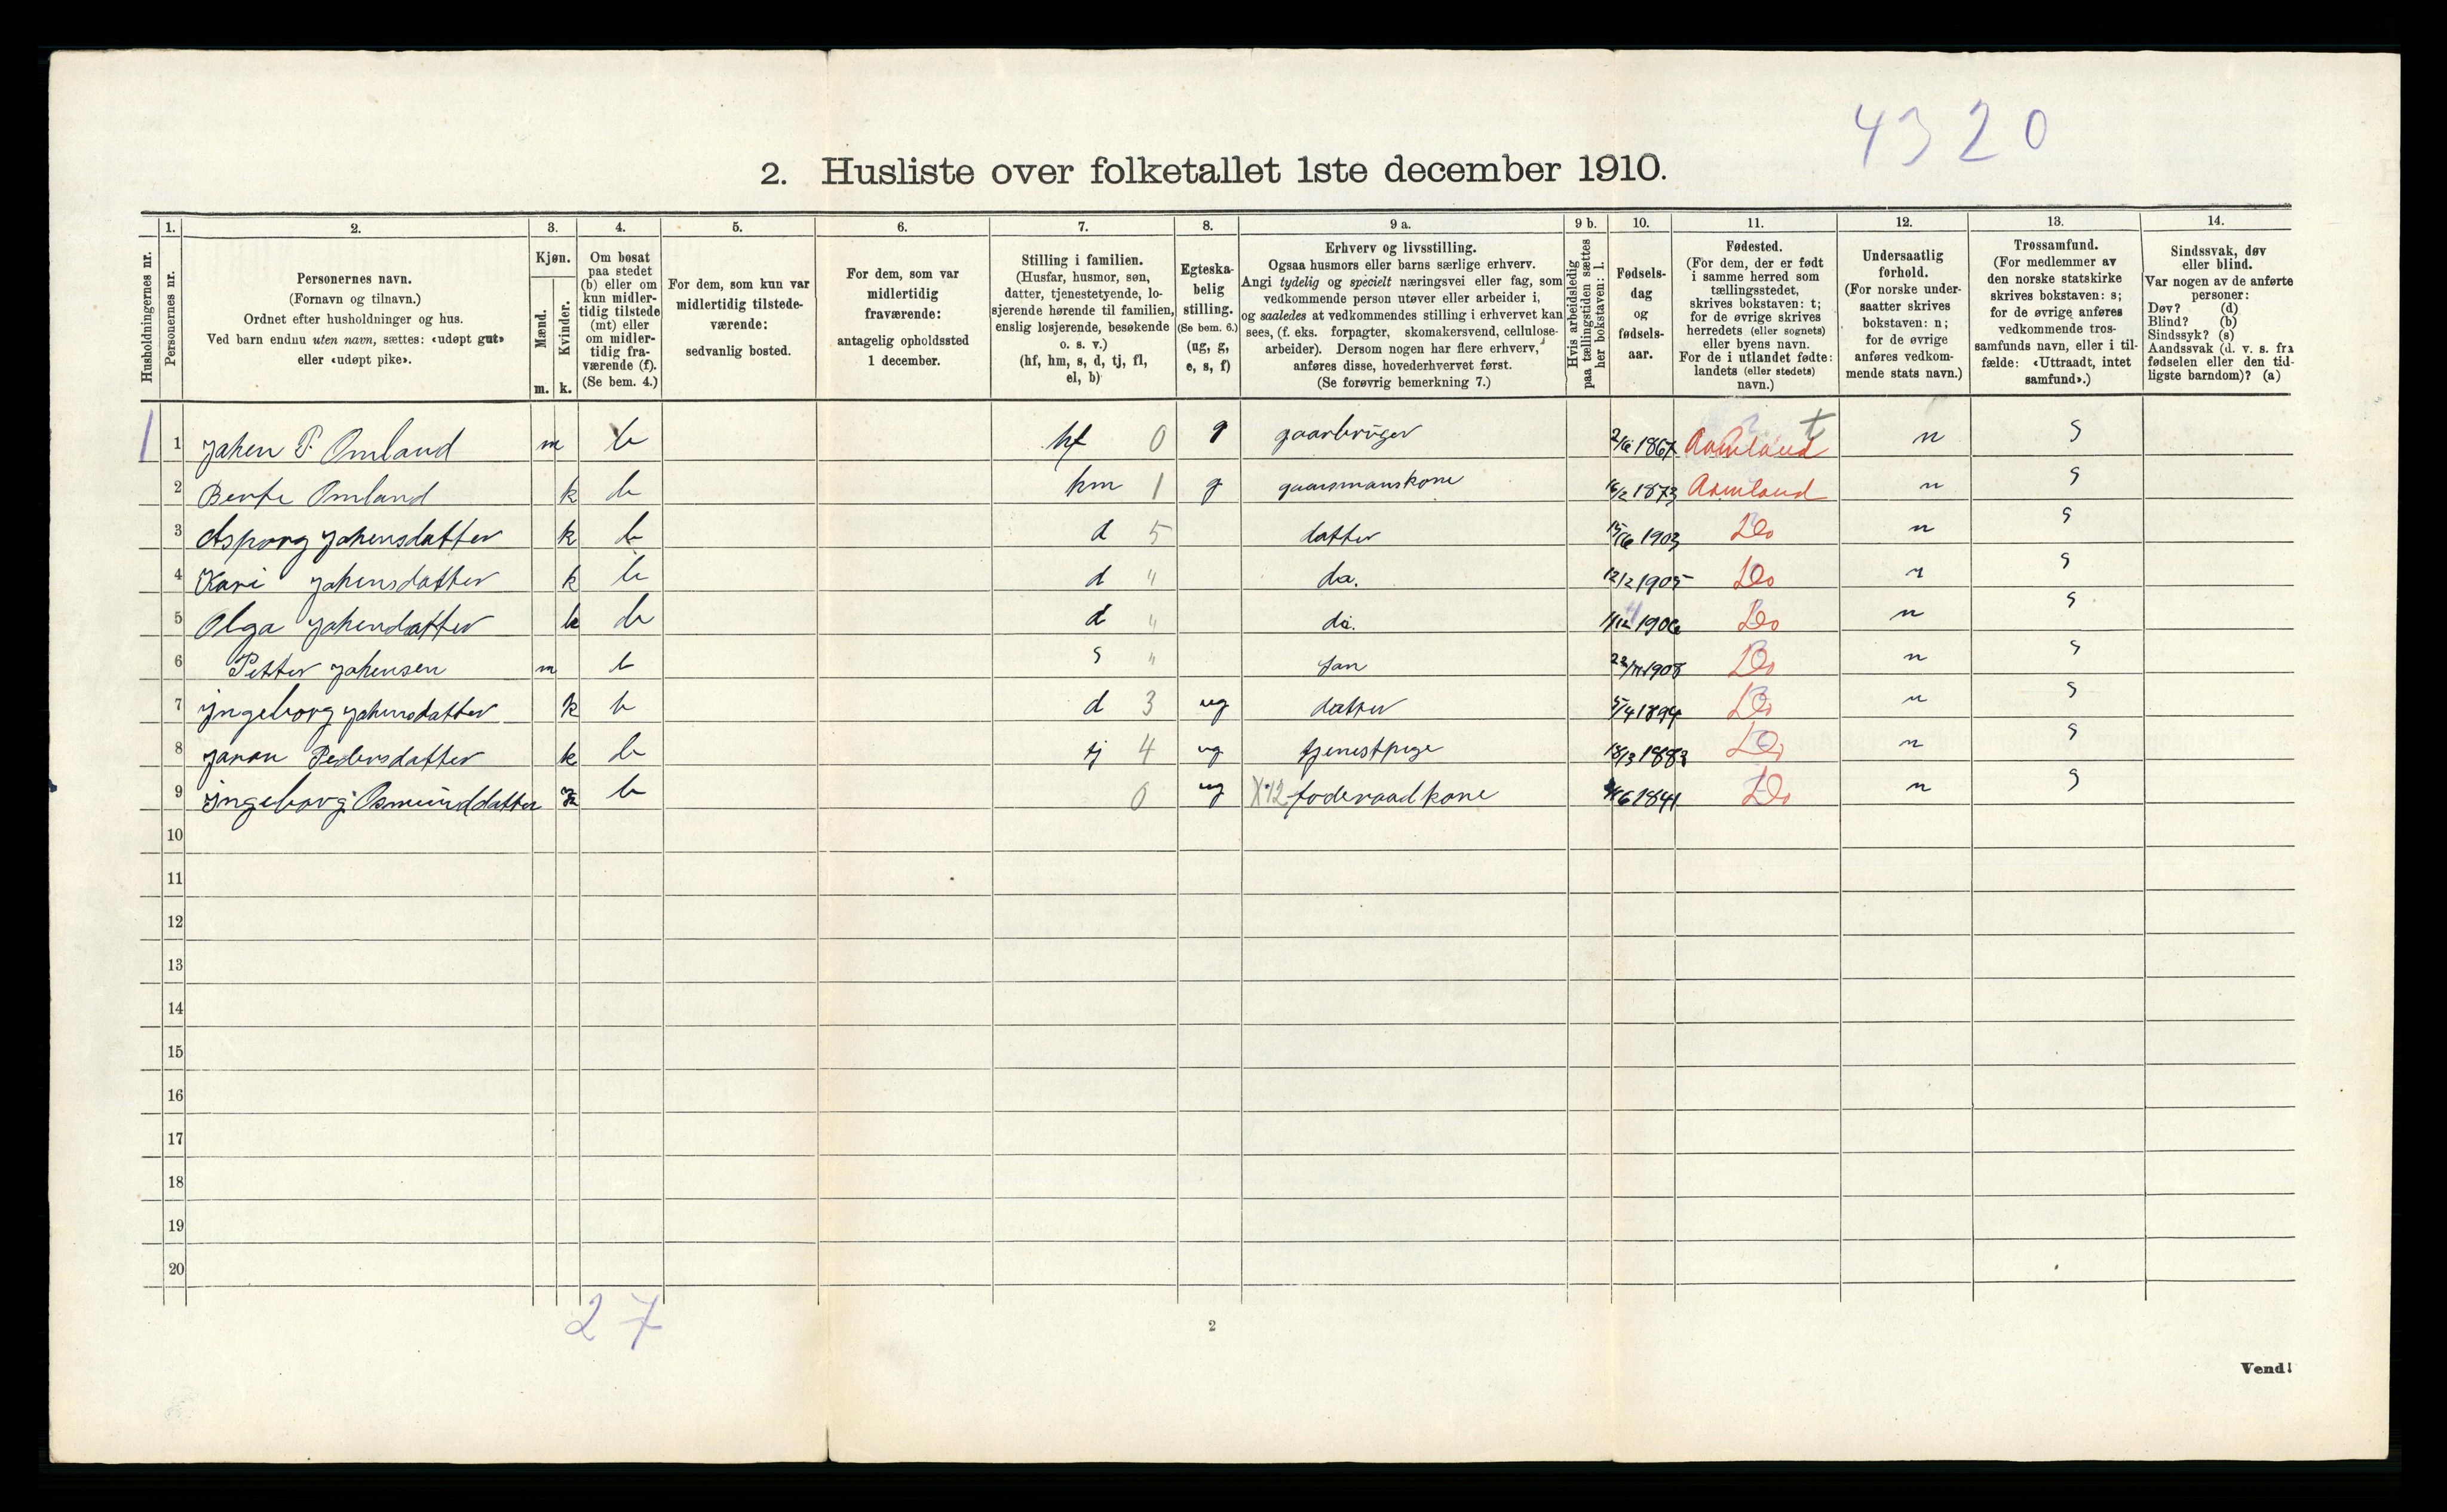 4320
2. Husliste over folketallet 1ste december 1910.
Husholdningernes nr.
1.
Personernes nr.
2.
Personernes navn.
(Fornavn og tilnavn.)
Ordnet efter husholdninger og hus.
Ved barn endnu uten navn, sættes: «udøpt gut»
eller «udøpt pike».
3.
Kjøn.
Mænd.
m.
Kvinder.
k.
4.
Om bosat
paa stedet
(b) eller om
kun midler-
tidig tilstede
(mt) eller
om midler-
tidig fra-
værende (f).
(Se bem. 4.)
5.
For dem, som kun var
midlertidig tilstede-
værende:
sedvanlig bosted.
6.
For dem, som var
midlertidig
fraværende:
antagelig opholdssted
1 december.
7.
Stilling i familien.
(Husfar, husmor, søn,
datter, tjenestetyende, lo-
sjerende hørende til familien,
enslig losjerende, besøkende
o. s. v.)
(hf, hm, s, d, tj, fl,
el, b)
8.
Egteska-
belig
stilling.
(Se bem. 6.)
(ug, g,
e, s, f)
9 a.
Erhverv og livsstilling.
Ogsaa husmors eller barns særlige erhverv.
Angi tydelig og specielt næringsvei eller fag, som
vedkommende person utøver eller arbeider i,
og saaledes at vedkommendes stilling i erhvervet kan
sees, (f. eks. forpagter, skomakersvend, cellulose-
arbeider). Dersom nogen har flere erhverv,
anføres disse, hovederhvervet først.
(Se forøvrig bemerkning 7.)
9 b.
Hvis arbeidsledig
paa tællingstiden sættes
her bokstaven: l.
10.
Fødsels-
dag
og
fødsels-
aar.
11.
Fødested.
(For dem, der er født
i samme herred som
tællingsstedet,
skrives bokstaven: t;
for de øvrige skrives
herredets (eller sognets)
eller byens navn.
For de i utlandet fødte:
landets (eller stedets)
navn.)
12.
Undersaatlig
forhold.
(For norske under-
saatter skrives
bokstaven: n;
for de øvrige
anføres vedkom-
mende stats navn.)
13.
Trossamfund.
(For medlemmer av
den norske statskirke
skrives bokstaven: s;
for de øvrige anføres
vedkommende tros-
samfunds navn, eller i til-
fælde: «Uttraadt, intet
samfund».)
14.
Sindssvak, døv
eller blind.
Var nogen av de anførte
personer:
Døv? (d)
Blind? (b)
Sindssyk? (s)
Aandssvak (d. v. s. fra
fødselen eller den tid-
ligste barndom)? (a)
1 1 Jahen P. Omland m b hf 0 g gaarbrüger 2/6 1867 Aamland t n s
2 Berte Omland k b hm 1 g gaarsmanskone 16/2 1873 Aamland n s
3 Asporg Jahensdatter k b d 5 datter 15/6 1903 Do n s
4 Kari Jahensdatter k b d " da. 12/2 1905 Do n s
5 Olga Jahendatter k b d " da. 1906 Do n s
6 Petter Jahensen m b s " san 1908 Do n s
7 Jngeborg Jahensdatter k b d 3 ug datter 5/4 1894 Do n s
8 Jaran Pedersdatter k b tj 4 ug tjenestpige 18/3 1883 Do n s
9 Jngeborg Osmünddatter k b 0 ug X12 foderaadkone 1841 Do n s
10
11
12
13
14
15
16
17
18
19
20
27
2
Vend!